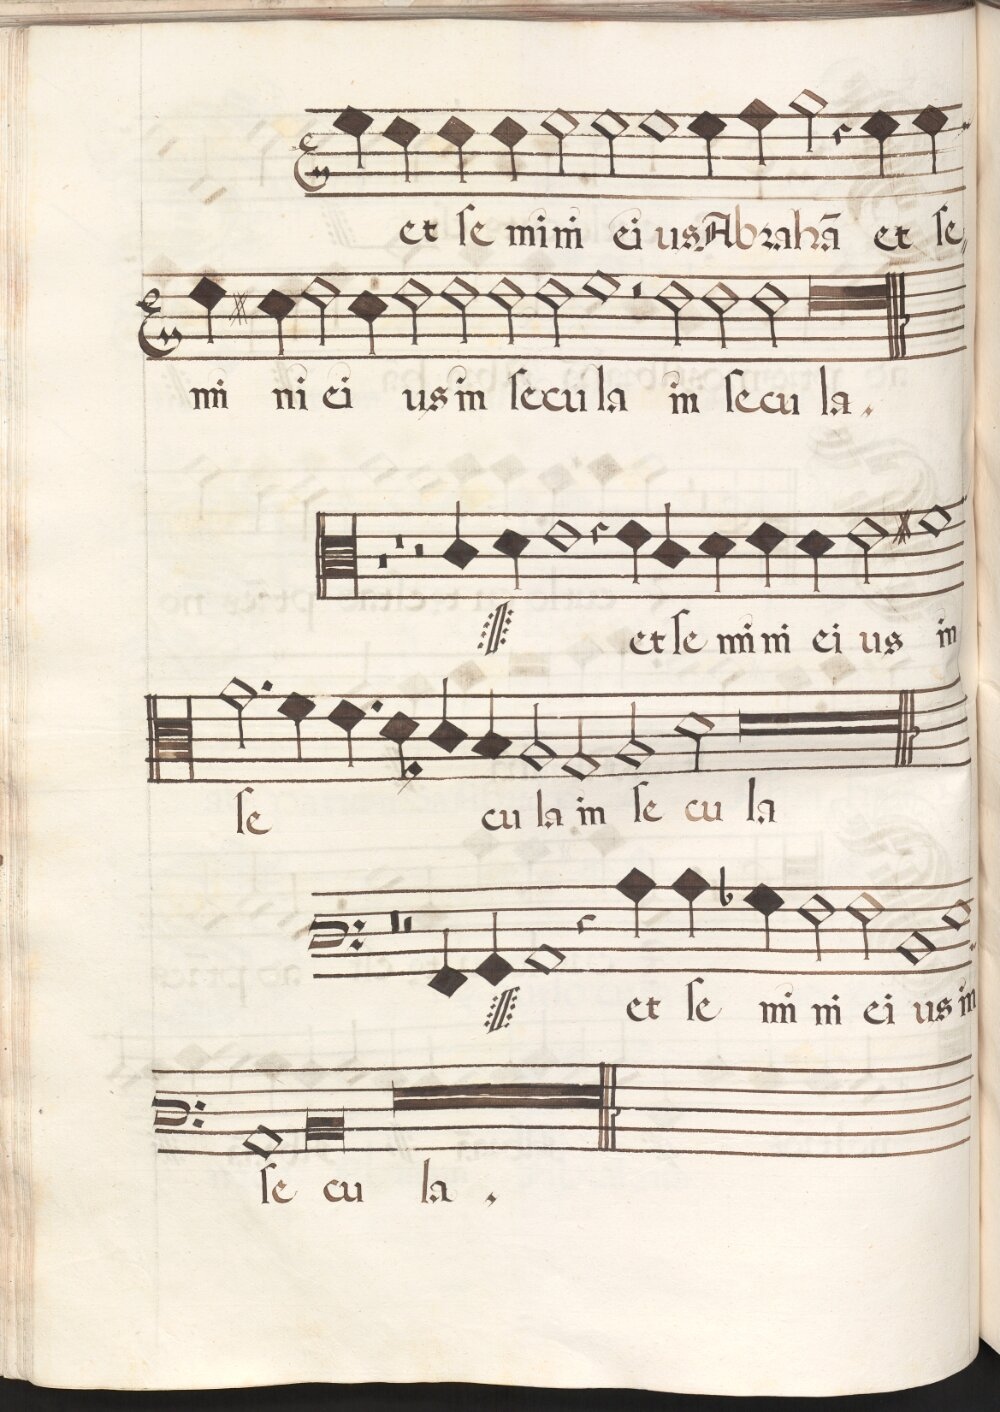 et se mini ei us Abrahā et se
mi ni ei us in secula in secula.
et se mini ei us in
se cu la in se cu la
et se mi ni ei us in
se cu la.